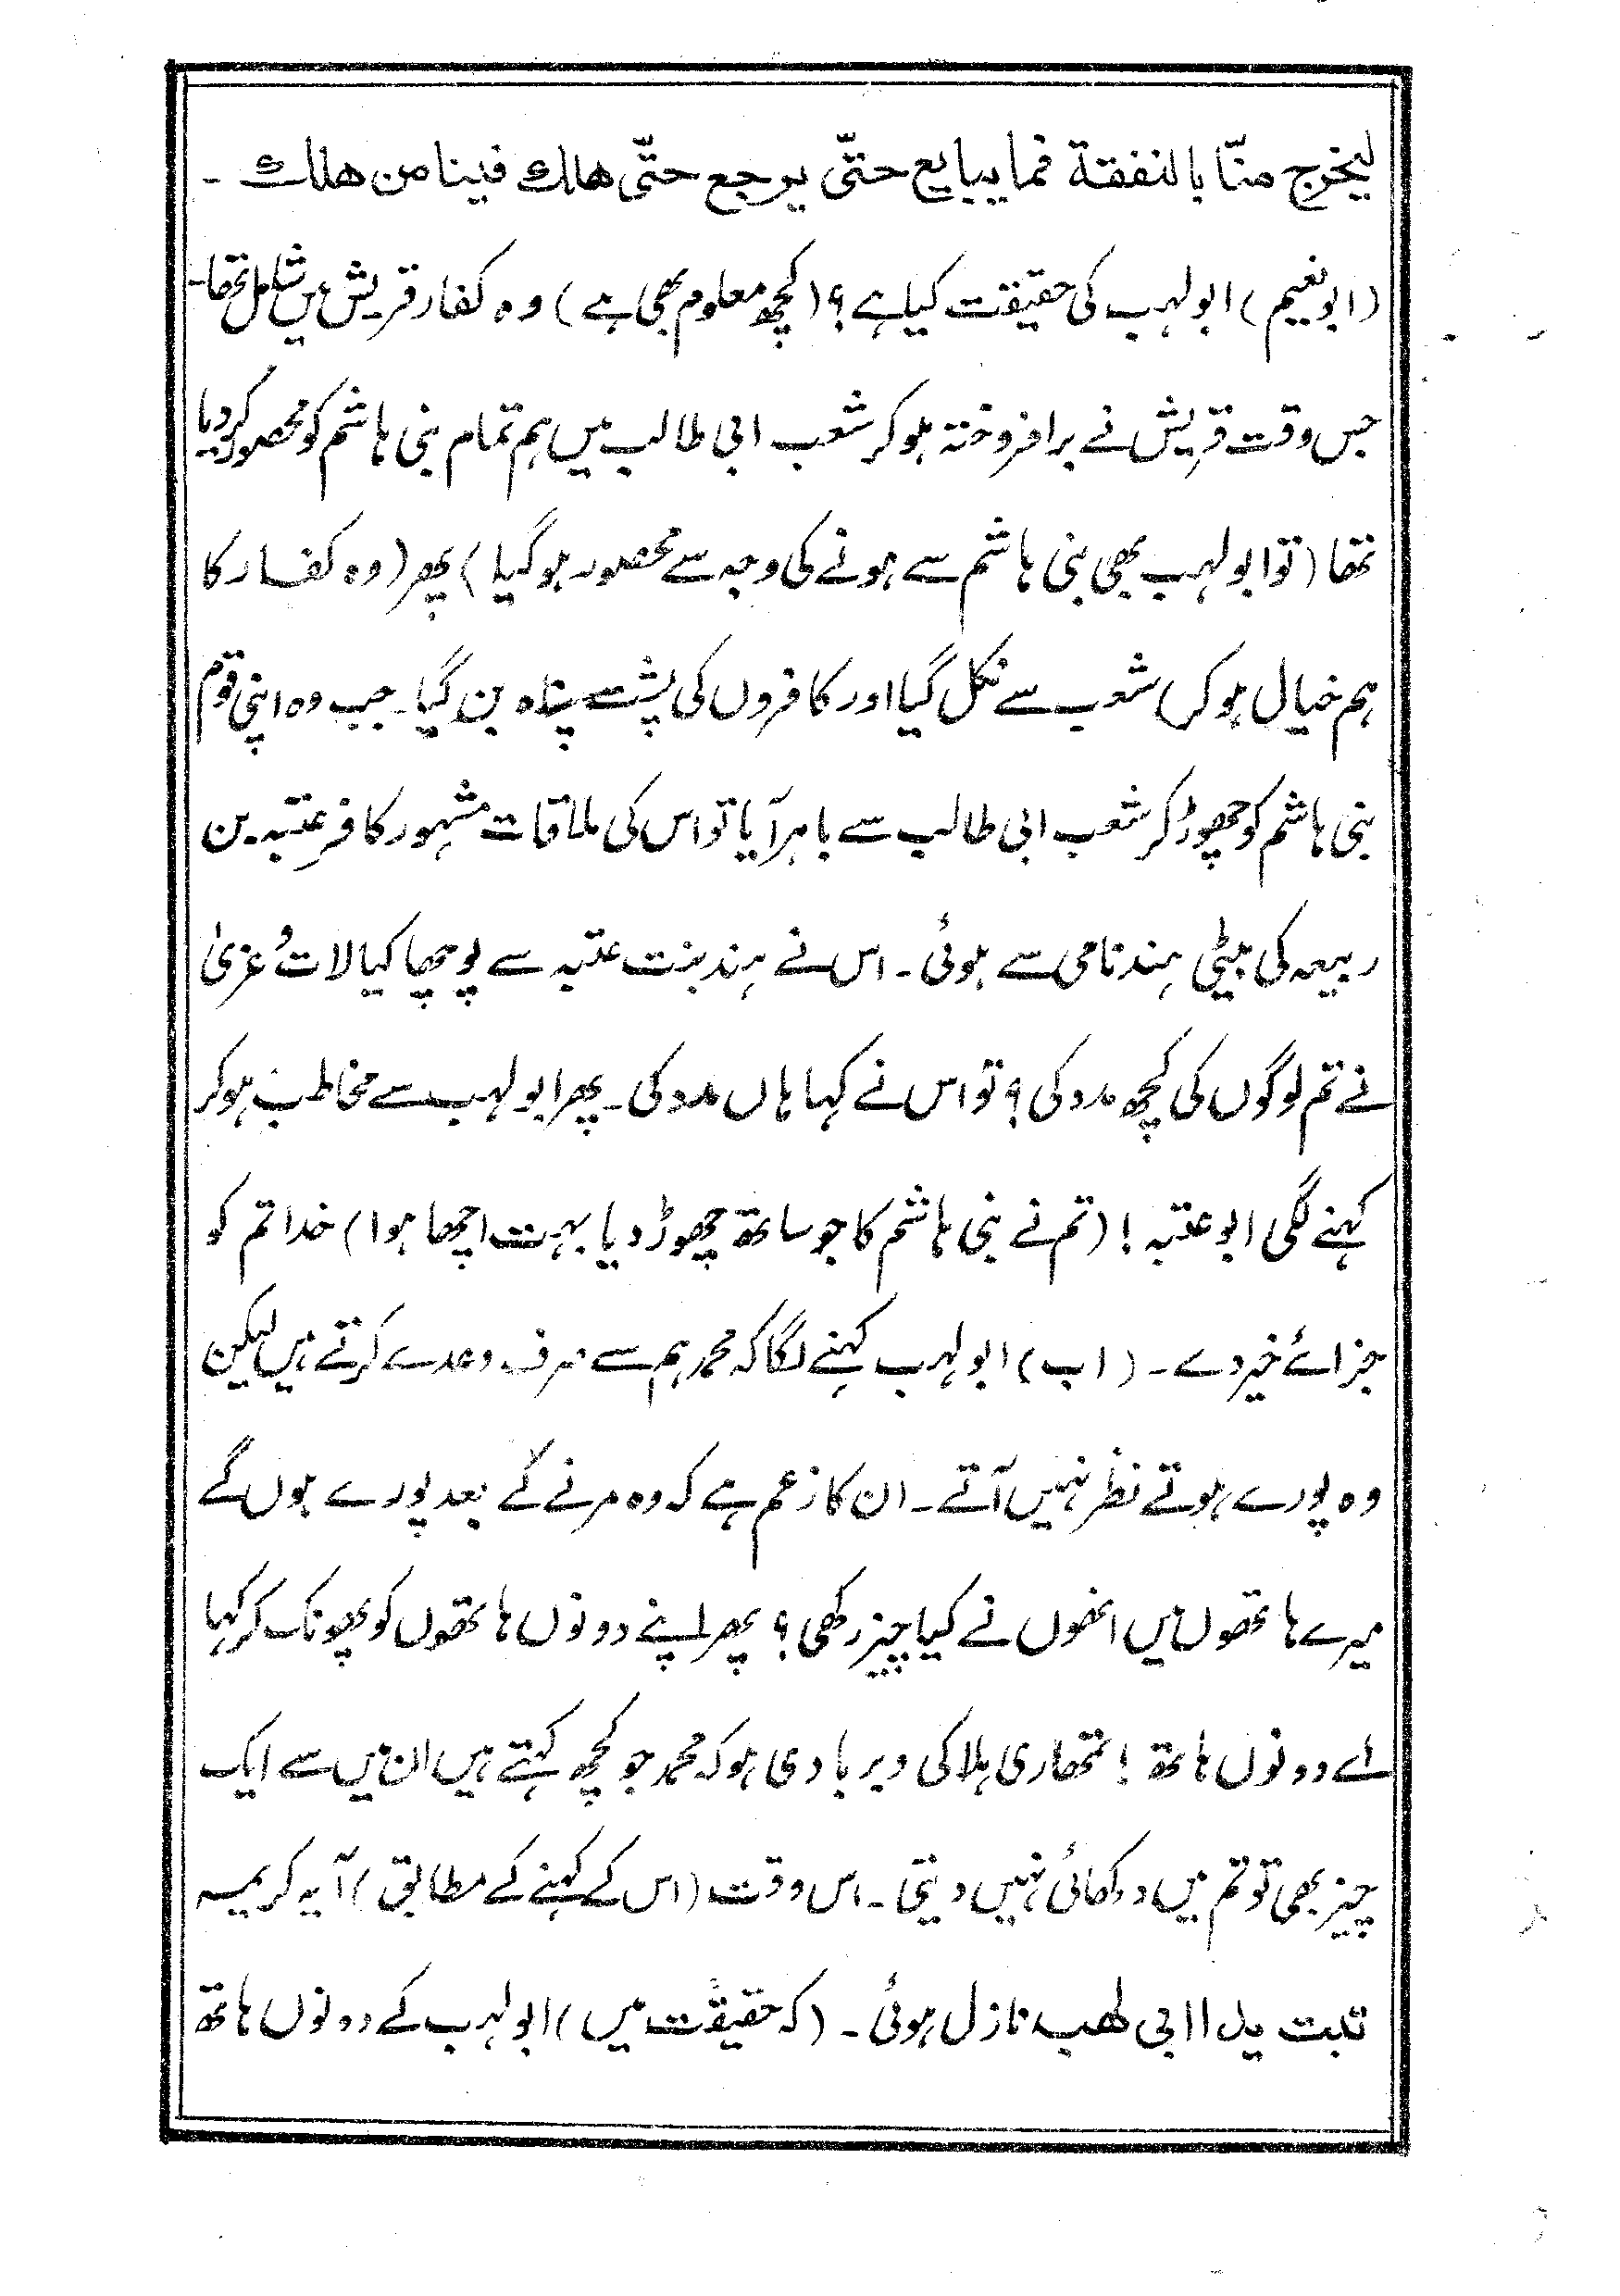 ليخرج منّا بالنفقة فما يبايع حتّى يرجع حتّى هلك فينا من هلك ۔
(ابو نعیم) ابو لہب کی حقیقت کیا ہے؟ (کچھ معلوم بھی ہے) وہ کفار قریش میں شامل تھا۔
جس وقت قریش نے برافروختہ ہو کر شعب ابی طالب میں ہم تمام بنی ہاشم کو محصور کر دیا
تھا (تو ابو لہب بھی بنی ہاشم سے ہونے کی وجہ سے محصور ہو گیا) پھر (وہ کفار کا
ہم خیال ہو کر) شعب سے نکل گیا اور کافروں کی پشت پناہ بن گیا۔ جب وہ اپنی قوم
بنی ہاشم کو چھوڑ کر شعب ابی طالب سے باہر آیا تو اس کی ملاقات مشہور کافر عتبہ بن
ربیعہ کی بیٹی ہند نامی سے ہوئی۔ اس نے ہند بنت عتبہ سے پوچھا کیا لات وُ عزیٰ
نے تم لوگوں کی کچھ مدد کی؟ تو اس نے کہا ہاں مدد کی۔ پھر ابو لہب سے مخاطب ہو کر
کہنے لگی ابو عتبہ! (تم نے بنی ہاشم کا جو ساتھ چھوڑ دیا بہت اچھا ہوا) خدا تم کو
جزائے خیر دے۔ (اب) ابو لہب کہنے لگا کہ محمد ہم سے صرف وعدے کرتے ہیں لیکن
وہ پورے ہوتے نظر نہیں آتے۔ ان کا زعم ہے کہ وہ مرنے کے بعد پورے ہوں گے
میرے ہاتھوں میں انھوں نے کیا چیز رکھی؟ پھر اپنے دونوں ہاتھوں کو پھونک کر کہا
اے دونوں ہاتھ! تمھاری ہلاکی و بربادی ہو کہ محمد جو کچھ کہتے ہیں ان میں سے ایک
چیز بھی تو تم میں دکھائی نہیں دیتی۔ اس وقت (اس کے کہنے کے مطابق) آیہ کریمہ
تبت يدا ابي لهب نازل ہوئی۔ (کہ حقیقت میں) ابو لہب کے دونوں ہاتھ